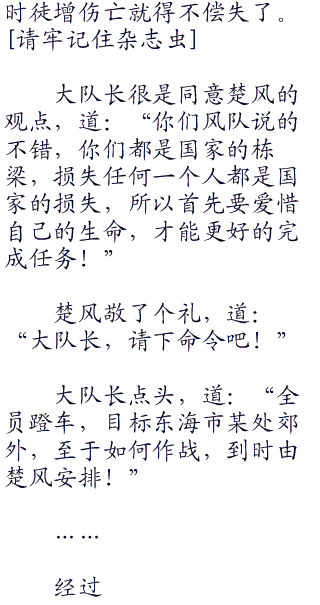 时徒增伤亡就得不偿失了。
[请牢记住杂志虫]
大队长很是同意楚风的
观点，道：“你们风队说的
不错，你们都是国家的栋
梁，损失任何一个人都是国
家的损失，所以首先要爱惜
自己的生命，才能更好的完
成任务！”
楚风敬了个礼，道：
“大队长，请下命令吧！”
大队长点头，道：“全
员蹬车，目标东海市某处郊
外，至于如何作战，到时由
楚风安排！”
……
经过